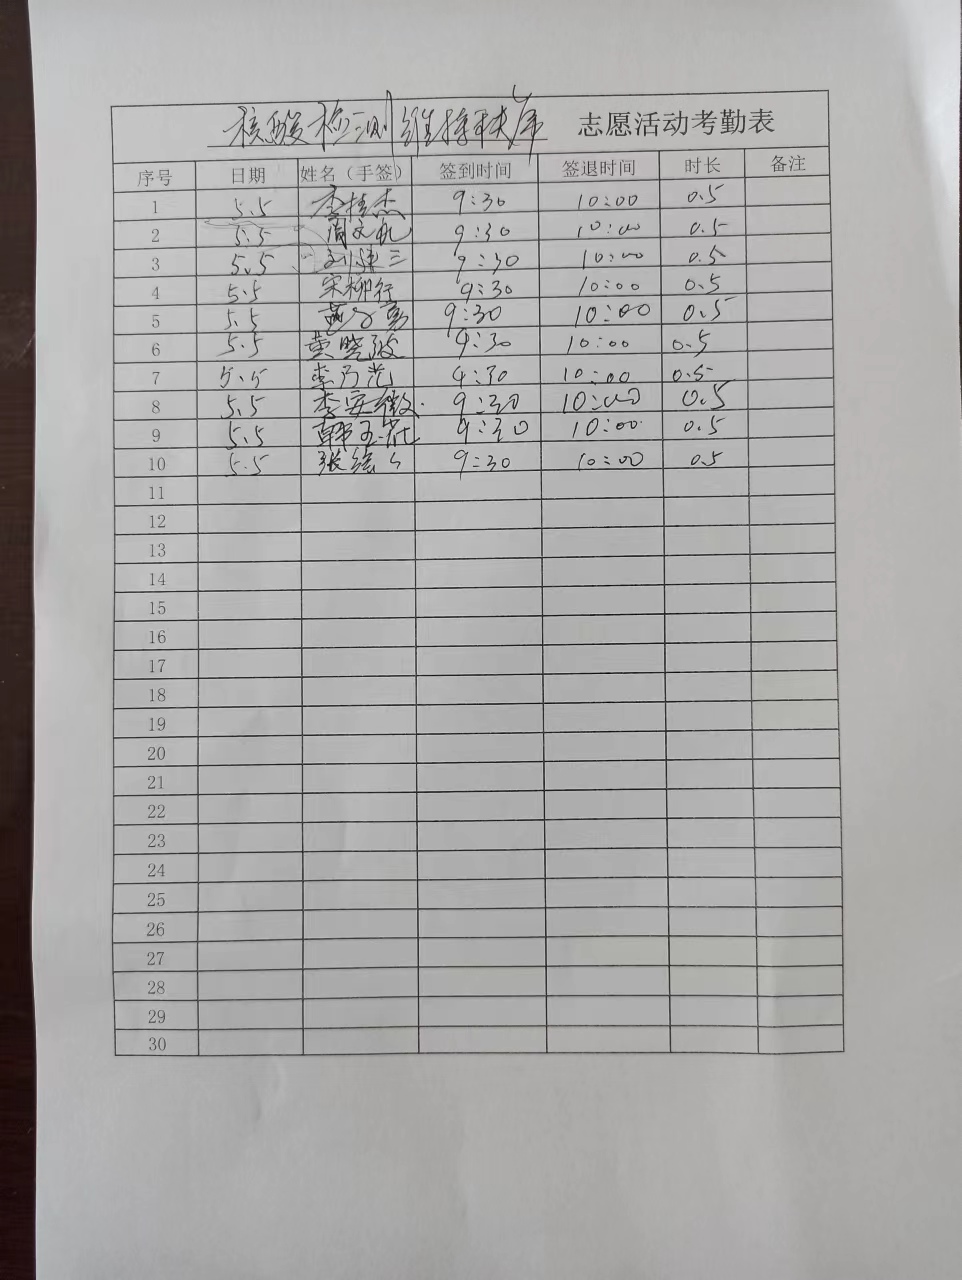 核酸检测维持秩序 志愿活动考勤表
序号 日期 姓名（手签） 签到时间 签退时间 时长 备注
1 5.5 李桂杰 9:30 10:00 0.5
2 5.5 周文礼 9:30 10:00 0.5
3 5.5 9:30 10:00 0.5
4 5.5 宋柳行 9:30 10:00 0.5
5 5.5 9:30 10:00 0.5
6 5.5 黄晓波 9:30 10:00 0.5
7 5.5 李乃范 9:30 10:00 0.5
8 5.5 李安微 9:30 10:00 0.5
9 5.5 韩玉花 9:30 10:00 0.5
10 5.5 9:30 10:00 0.5
11
12
13
14
15
16
17
18
19
20
21
22
23
24
25
26
27
28
29
30